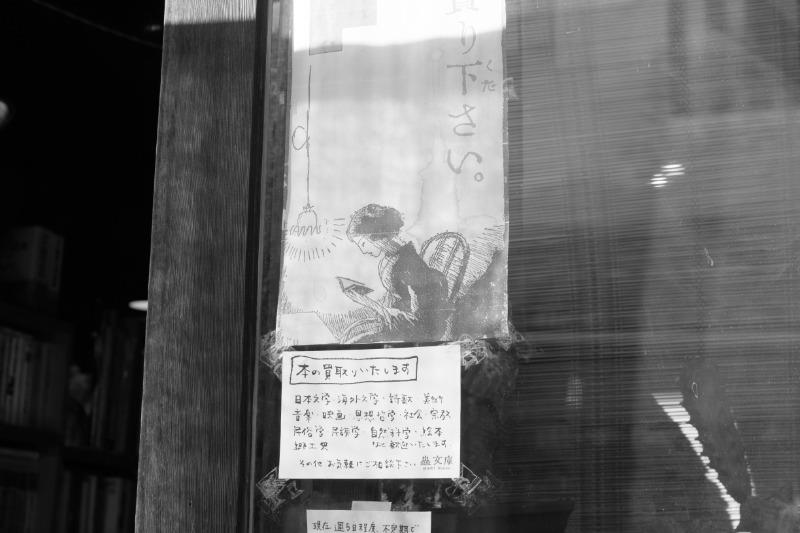 り下さい。
くだ
本の買取りいたします
日本文学・海外文学・詩歌 美術
音楽・映画・思想哲学・社会・宗教
民俗学・民族学・自然科学・絵本
郷土史 など歓迎いたします
その他 お気軽にご相談下さい 蟲文庫
現在 週5日程度、不定期で